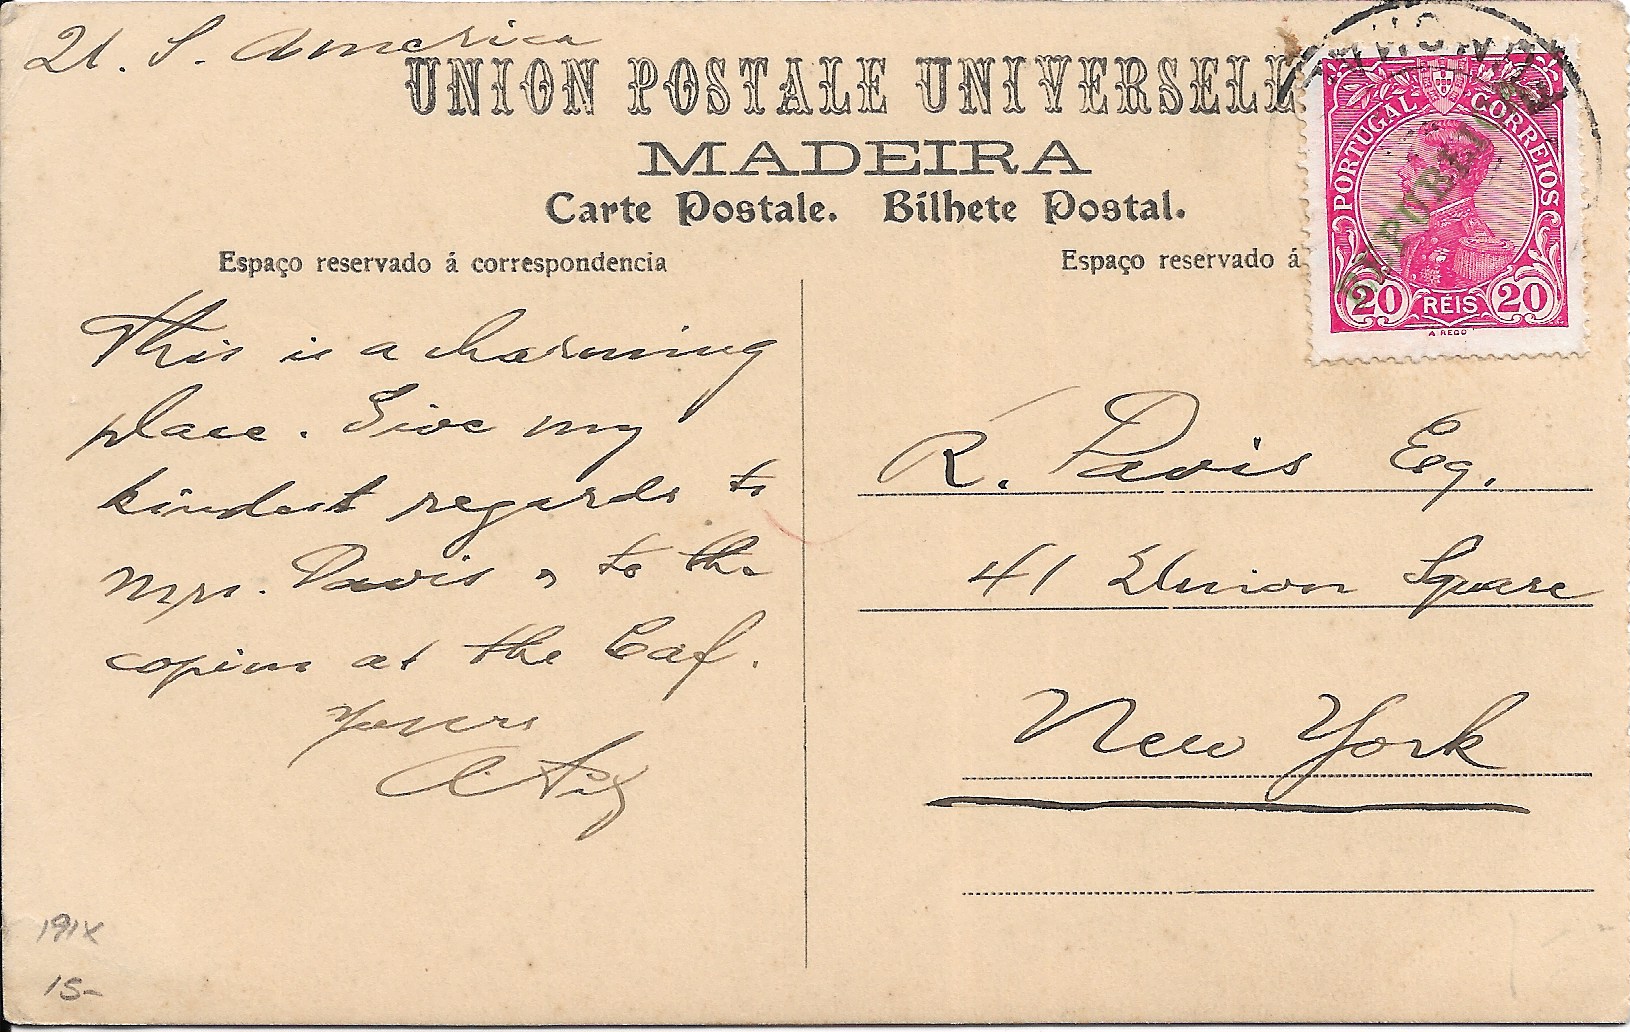 U. S. America
UNION POSTALE UNIVERSELL
MADEIRA
Carte Postale. Bilhete Postal.
Espaço reservado á correspondencia
Espaço reservado á
PORTUGAL CORREIOS
REPUBLICA
20 RÉIS 20
A. REGO
This is a charming
place. Give my
kindest regards to
Mrs. Davis & to the
at the Caf.
Yours
R. Davis Eq.
41 Union Square
New York
191X
15-